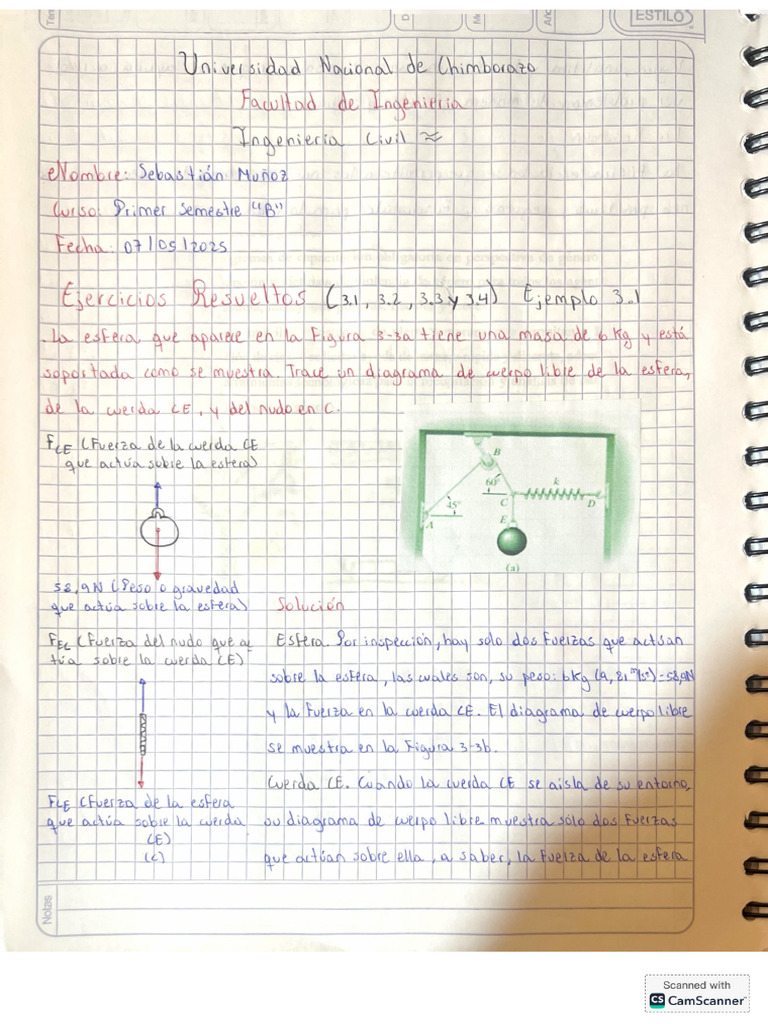 ESTILO
Universidad Nacional de Chimborazo
Facultad de Ingeniería
Ingeniería Civil
Nombre: Sebastián Muñoz
Curso: Primer Semestre "B"
Fecha: 07/05/2025
Ejercicios Resueltos (3.1, 3.2, 3.3 y 3.4) Ejemplo 3.1
La esfera que aparece en la Figura 3-3a tiene una masa de 6 Kg y está
soportada como se muestra. Trace un diagrama de cuerpo libre de la esfera,
de la cuerda CE, y del nudo en C.
FCE (Fuerza de la cuerda CE
que actúa sobre la esfera)
B
60°
k
C
D
45°
A
E
(a)
58,9N (Peso o gravedad
que actúa sobre la esfera)
Solución
FEC (Fuerza del nudo que ac
túa sobre la cuerda CE)
Esfera. Por inspección, hay solo dos fuerzas que actúan
sobre la esfera, las cuales son, su peso: 6Kg (9,81 m/s²)=58,9N
y la Fuerza en la cuerda CE. El diagrama de cuerpo libre
se muestra en la Figura 3-3b.
Cuerda CE. Cuando la cuerda CE se aisla de su entorno,
FCE (Fuerza de la esfera
que actúa sobre la cuerda
CE)
(c)
su diagrama de cuerpo libre muestra sólo dos fuerzas
que actúan sobre ella, a saber, la fuerza de la esfera
Notas
Scanned with
CS CamScanner